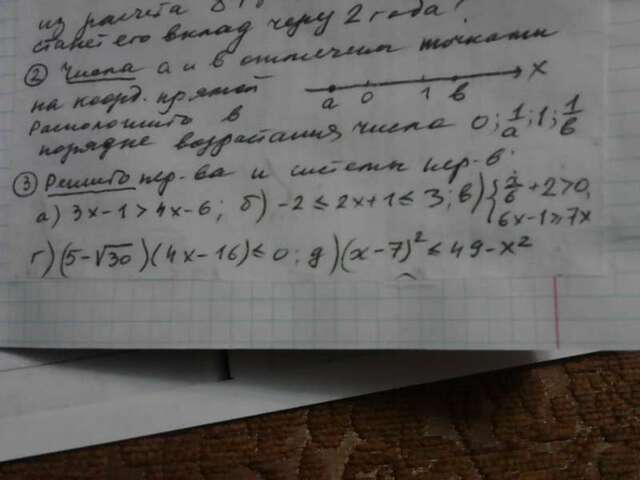 из расчёта
станет его вклад через 2 года?
② Числа a и в отмечены точками
на коорд. прямой
a 0 1 в x
Расположить в
порядке возрастания числа 0; 1/a; 1; 1/в
③ Решить нер-ва и системы нер-в:
а) 3x-1>4x-6; б) -2≤2x+1≤3; в) { /6+2>0,
6x-1≥7x
г) (5-√30)(4x-16)≤0; д) (x-7)²≤49-x²